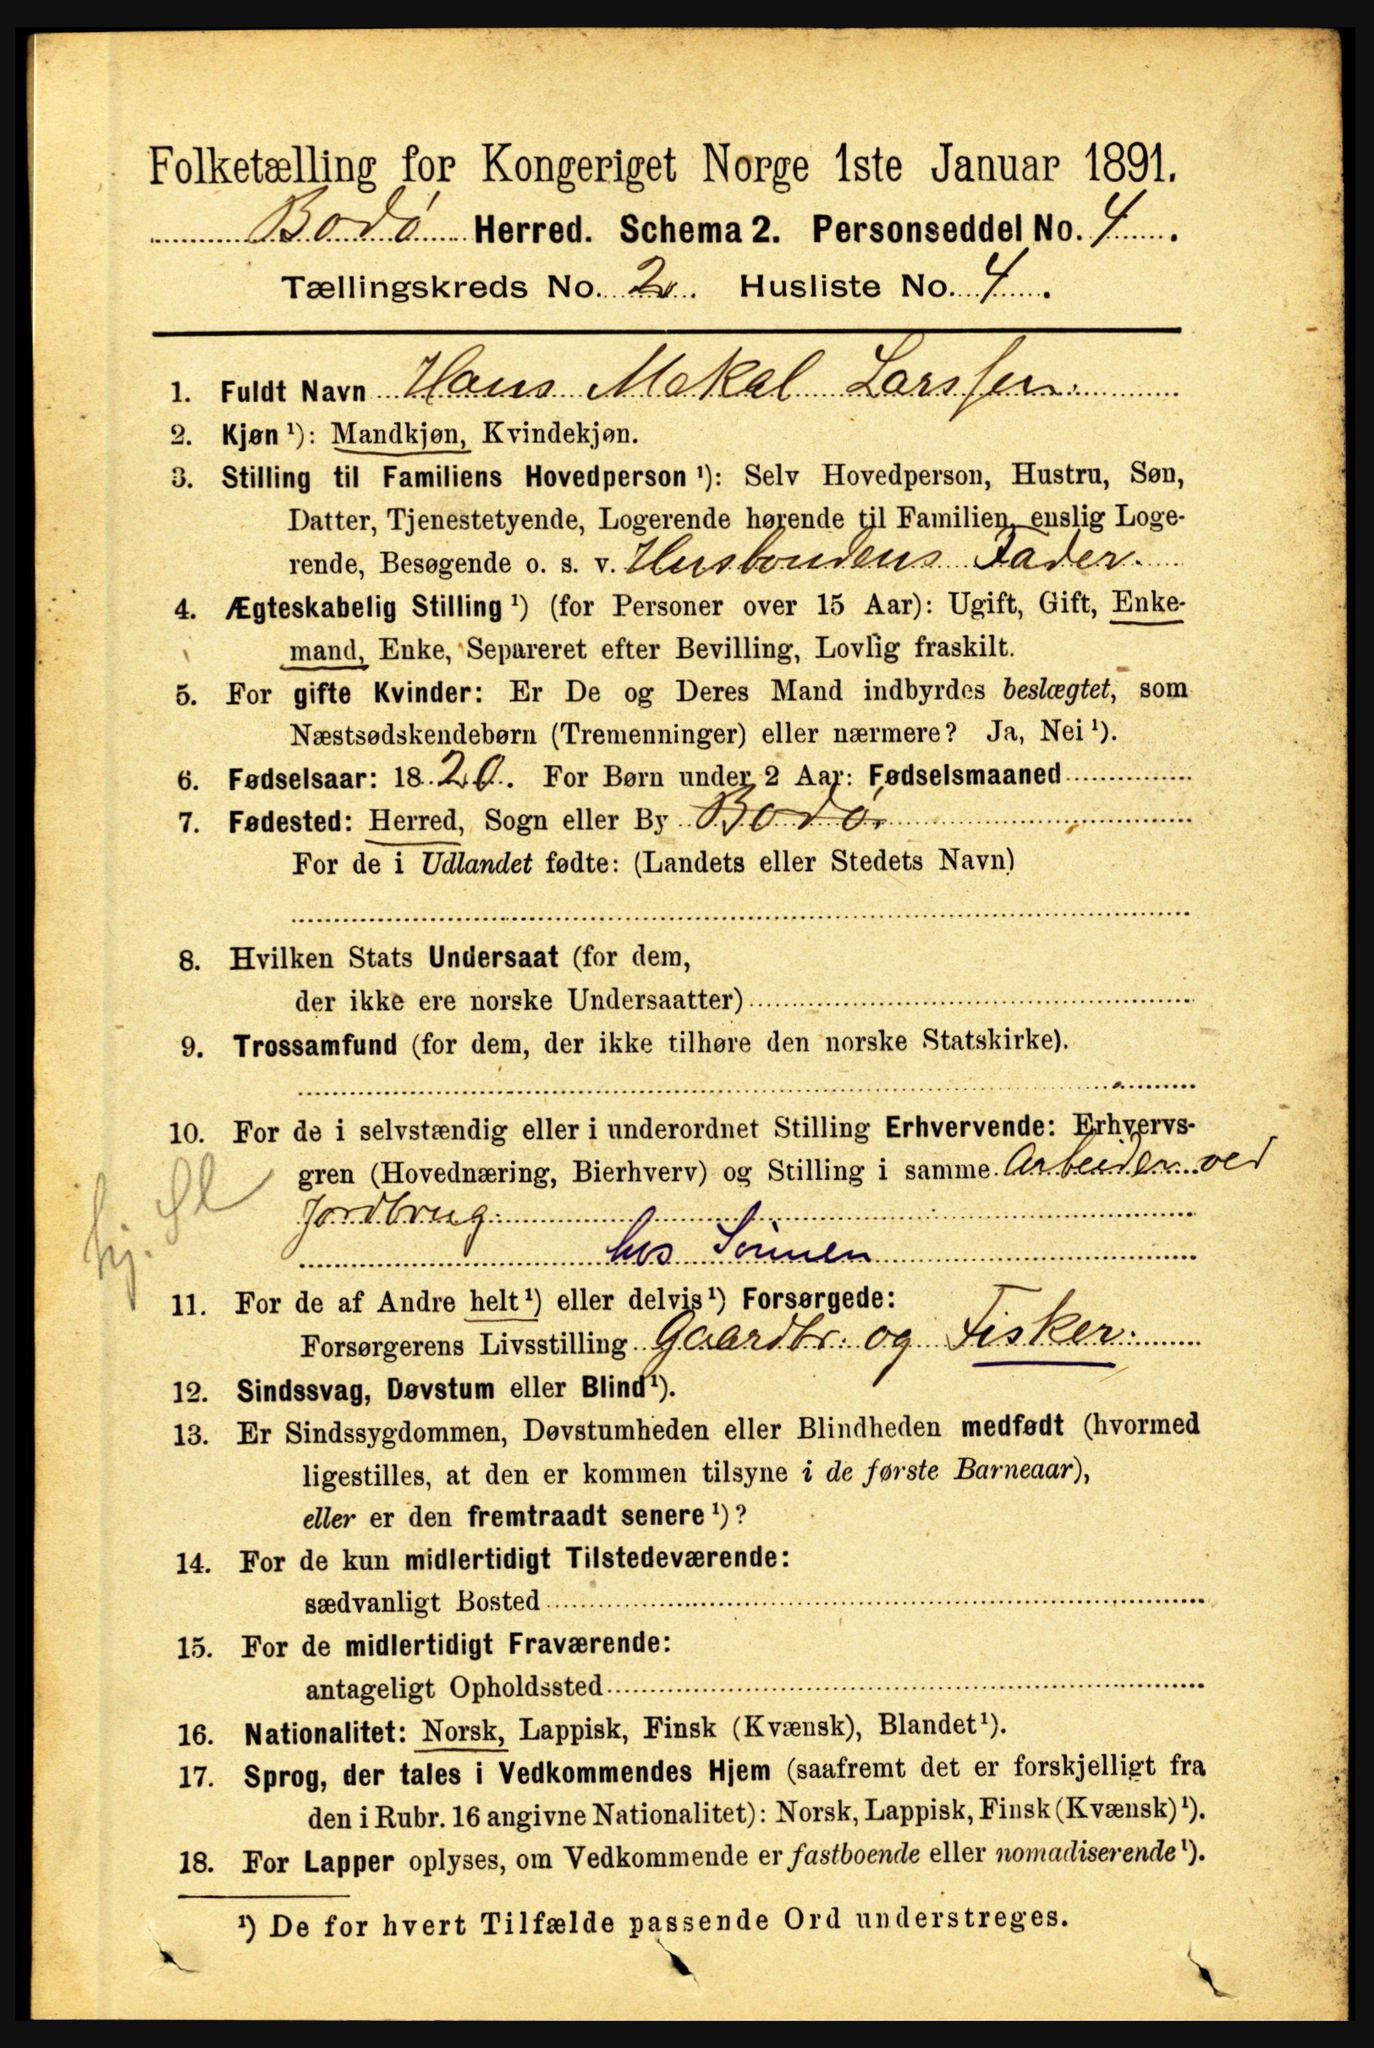 Folketælling for Kongeriget Norge 1ste Januar 1891.
Bodø Herred. Schema 2. Personseddel No. 4.
Tællingskreds No. 2. Husliste No. 4.
1. Fuldt Navn Hans Mekal Larssen.
2. Kjøn ¹): Mandkjøn, Kvindekjøn.
3. Stilling til Familiens Hovedperson ¹): Selv Hovedperson, Hustru, Søn,
Datter, Tjenestetyende, Logerende hørende til Familien, enslig Loge-
rende, Besøgende o. s. v. Husbondens Fader.
4. Ægteskabelig Stilling ¹) (for Personer over 15 Aar): Ugift, Gift, Enke-
mand, Enke, Separeret efter Bevilling, Lovlig fraskilt.
5. For gifte Kvinder: Er De og Deres Mand indbyrdes beslægtet, som
Næstsødskendebørn (Tremenninger) eller nærmere? Ja, Nei ¹).
6. Fødselsaar: 1820. For Børn under 2 Aar: Fødselsmaaned
7. Fødested: Herred, Sogn eller By Bodø.
For de i Udlandet fødte: (Landets eller Stedets Navn)
8. Hvilken Stats Undersaat (for dem,
der ikke ere norske Undersaatter)
9. Trossamfund (for dem, der ikke tilhøre den norske Statskirke).
10. For de i selvstændig eller i underordnet Stilling Erhvervende: Erhvervs-
gren (Hovednæring, Bierhverv) og Stilling i samme Arbeider ved
Jordbrug
hj. Sl
hos Sønnen
11. For de af Andre helt ¹) eller delvis ¹) Forsørgede:
Forsørgerens Livsstilling Gaardbr. og Fisker.
12. Sindssvag, Døvstum eller Blind ¹).
13. Er Sindssygdommen, Døvstumheden eller Blindheden medfødt (hvormed
ligestilles, at den er kommen tilsyne i de første Barneaar),
eller er den fremtraadt senere ¹)?
14. For de kun midlertidigt Tilstedeværende:
sædvanligt Bosted
15. For de midlertidigt Fraværende:
antageligt Opholdssted
16. Nationalitet: Norsk, Lappisk, Finsk (Kvænsk), Blandet ¹).
17. Sprog, der tales i Vedkommendes Hjem (saafremt det er forskjelligt fra
den i Rubr. 16 angivne Nationalitet): Norsk, Lappisk, Finsk (Kvænsk) ¹).
18. For Lapper oplyses, om Vedkommende er fastboende eller nomadiserende ¹).
¹) De for hvert Tilfælde passende Ord understreges.